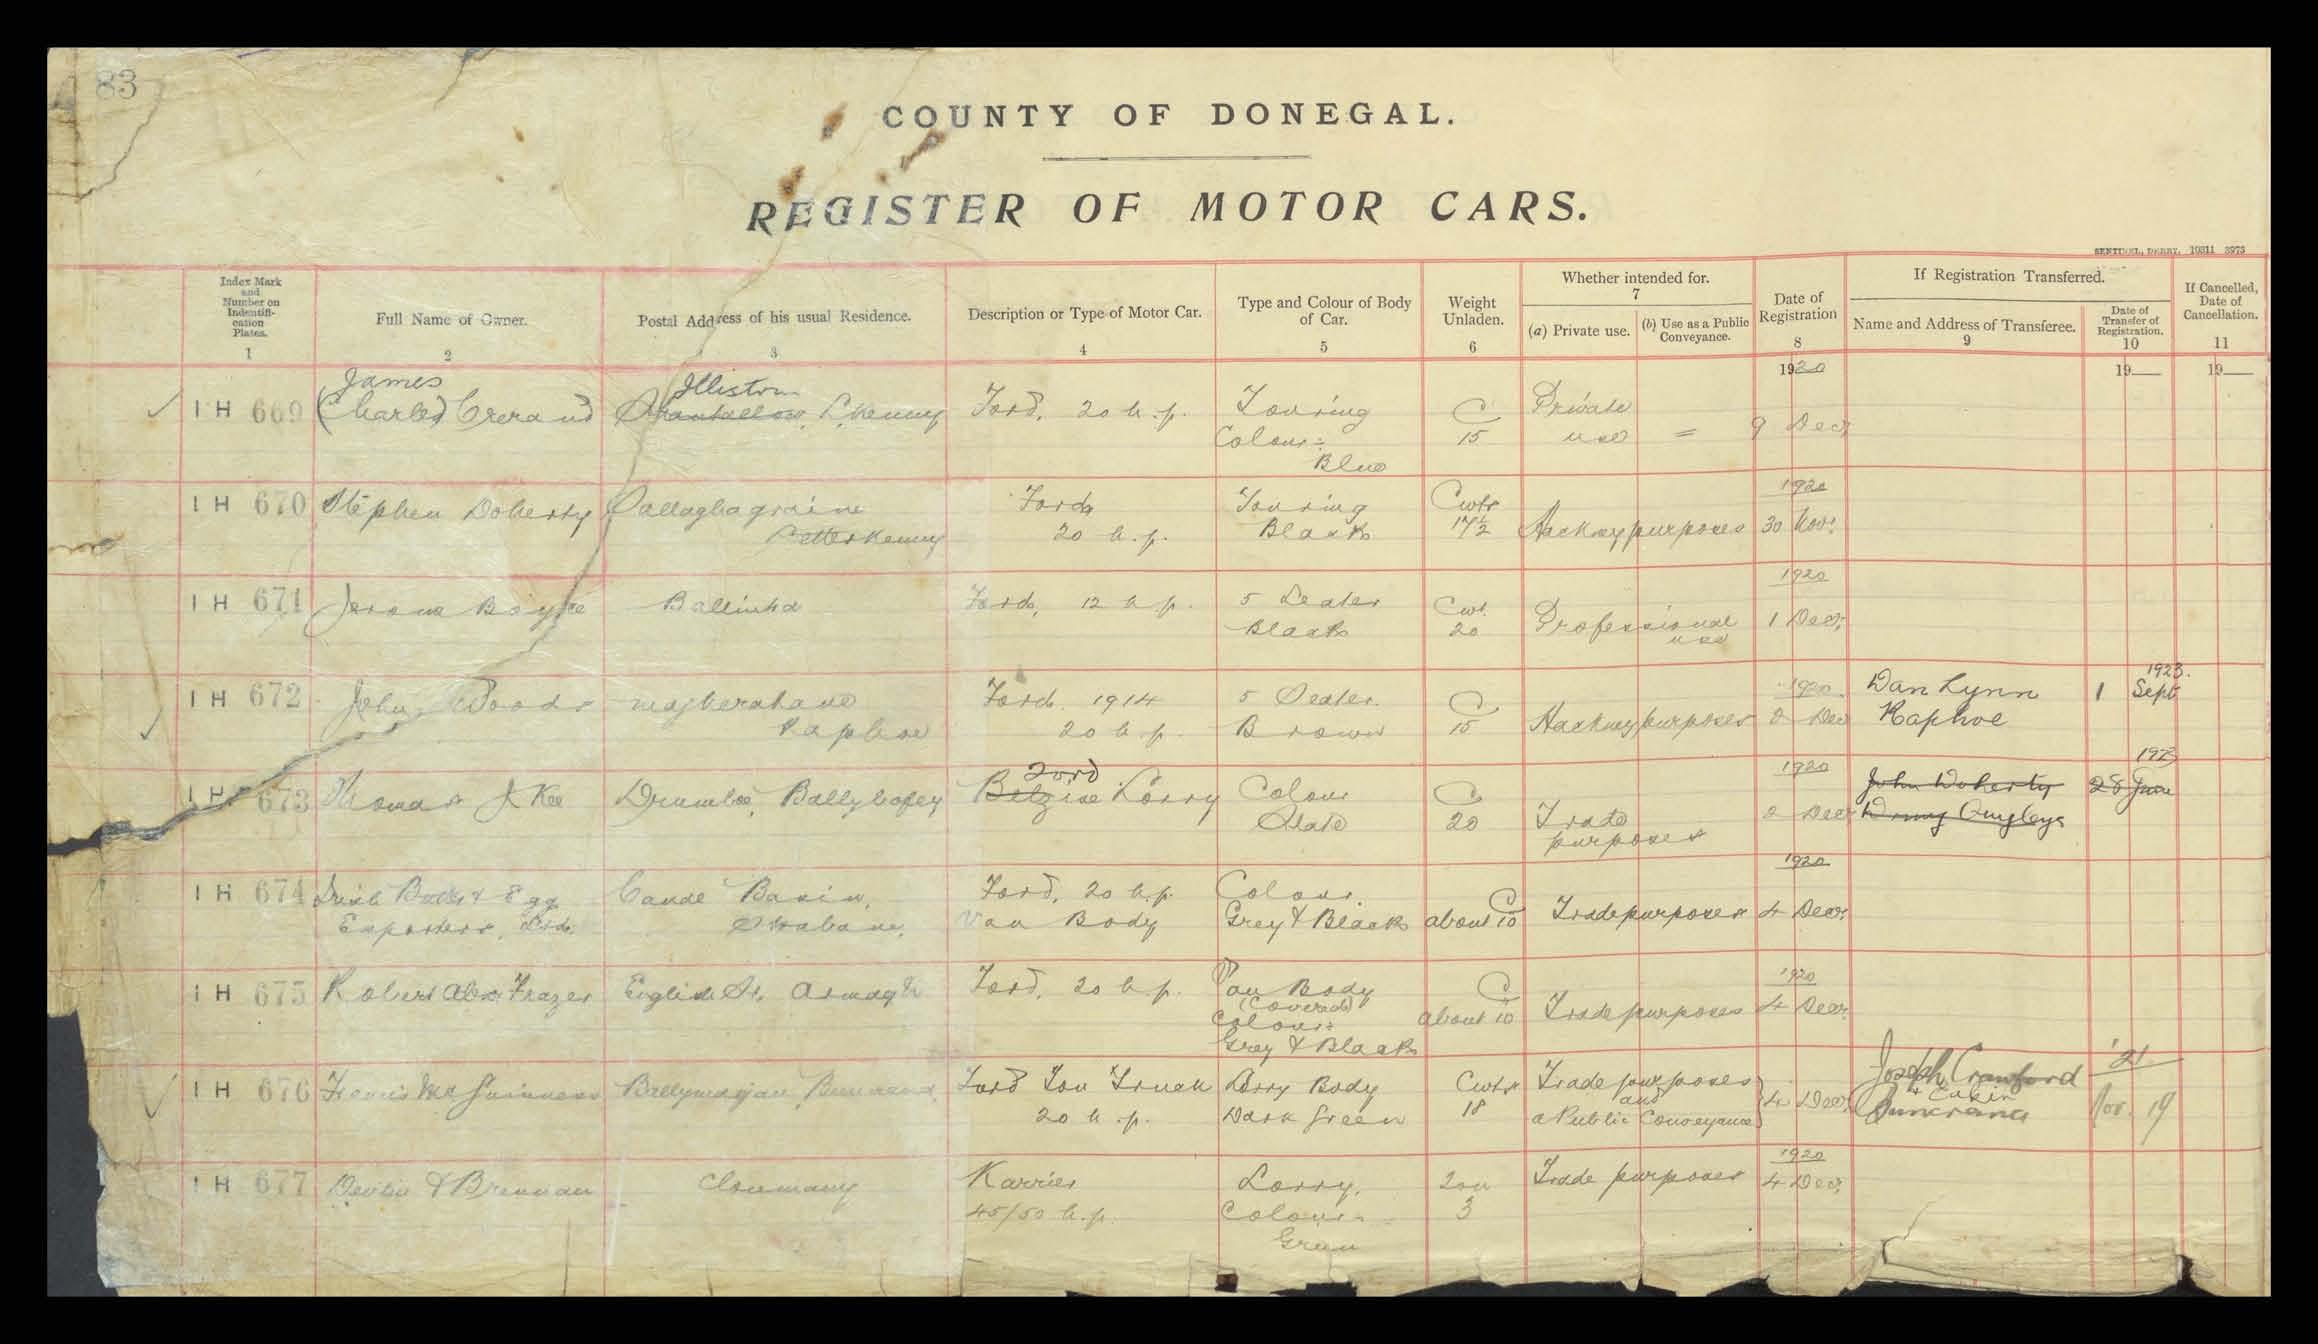 83
COUNTY OF DONEGAL.
REGISTER OF MOTOR CARS.
SENTINEL, DERRY. 10311 3973
Index Mark and Number on Indentifi-cation Plates. 1
Full Name of Owner. 2
Postal Address of his usual Residence. 3
Description or Type of Motor Car. 4
Type and Colour of Body of Car. 5
Weight Unladen. 6
Whether intended for. 7
(a) Private use.
(b) Use as a Public Conveyance.
Date of Registration 8
If Registration Transferred.
Name and Address of Transferee. 9
Date of Transfer of Registration. 10
If Cancelled, Date of Cancellation. 11
1920 19 19
James Illistrin
IH 669 (Charles) Crerand L.Kenny Ford, 20 h.p. Touring C Private
Colour:- 15 use = 9 Decr
Blue
1920
IH 670 Stephen Doherty Letterkenny Ford 20 h.p. Touring Black Cwts 17½ Hackney purposes 30 Novr
1920
IH 671 Jerome Boyce Ford, 12 h.p. 5 Seater Black Cwt. 20 Professional use 1 Decr
1920 1923.
IH 672 John Woods Raphoe Ford 1914 20 h.p. 5 Seater Brown C 15 Hackney purposes 2 Dec Dan Lynn Raphoe 1 Sept
1920 1923
IH 673 Thomas J Kee Drumboe, Ballybofey Ford Lorry Colour Slate C 20 Trade purposes 2 Decr John Doherty 28 June
1920
IH 674 Irish Butter & Egg Exporters, Ltd. Canal Basin, Strabane. Ford, 20 h.p. Van Body Colour. Grey & Black C about 10 Trade purposes 4 Decr.
1920
IH 675 Robert Alex. Frazer English St. Armagh Ford, 20 h.p. Van Body (Covered) Colour:- Grey & Black C about 10 Trade purposes 4 Decr.
IH 676 Francis McGuinness Buncrana Ford Ton Truck 20 h.p. Lorry Body Dark Green Cwts 18 Trade purposes and a Public Conveyance 4 Decr. Joseph Crawford Buncrana '21 Nov. 19
1920
IH 677 Devlin & Brennan Clonmany Karrier 45/50 h.p. Lorry. Colour:- Green Ton 3 Trade purposes 4 Decr.